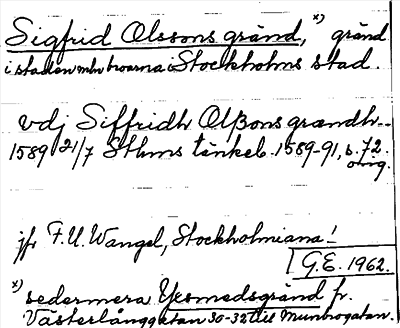 Sigfrid Olssons gränd, x) gränd
i staden mln broarna i Stockholms stad.
vdj Siffridh Olßons grændh
1589 21/7 Sthms tänkeb. 1589-91, s. 72.
orig.
jfr F.U. Wangel, Stockholmiana I
G.E. 1962.
x) sedermera Yxsmedsgränd fr.
Västerlånggatan 30-32 till Munkbrogatan.